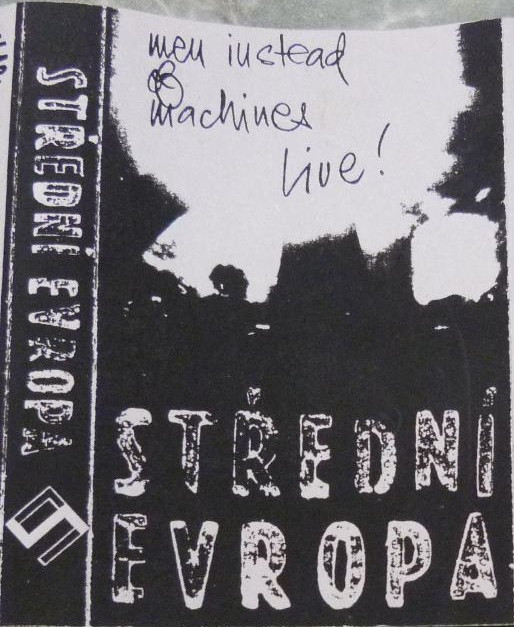 STŘEDNÍ EVROPA
men instead
machines
live!
STŘEDNÍ
EVROPA